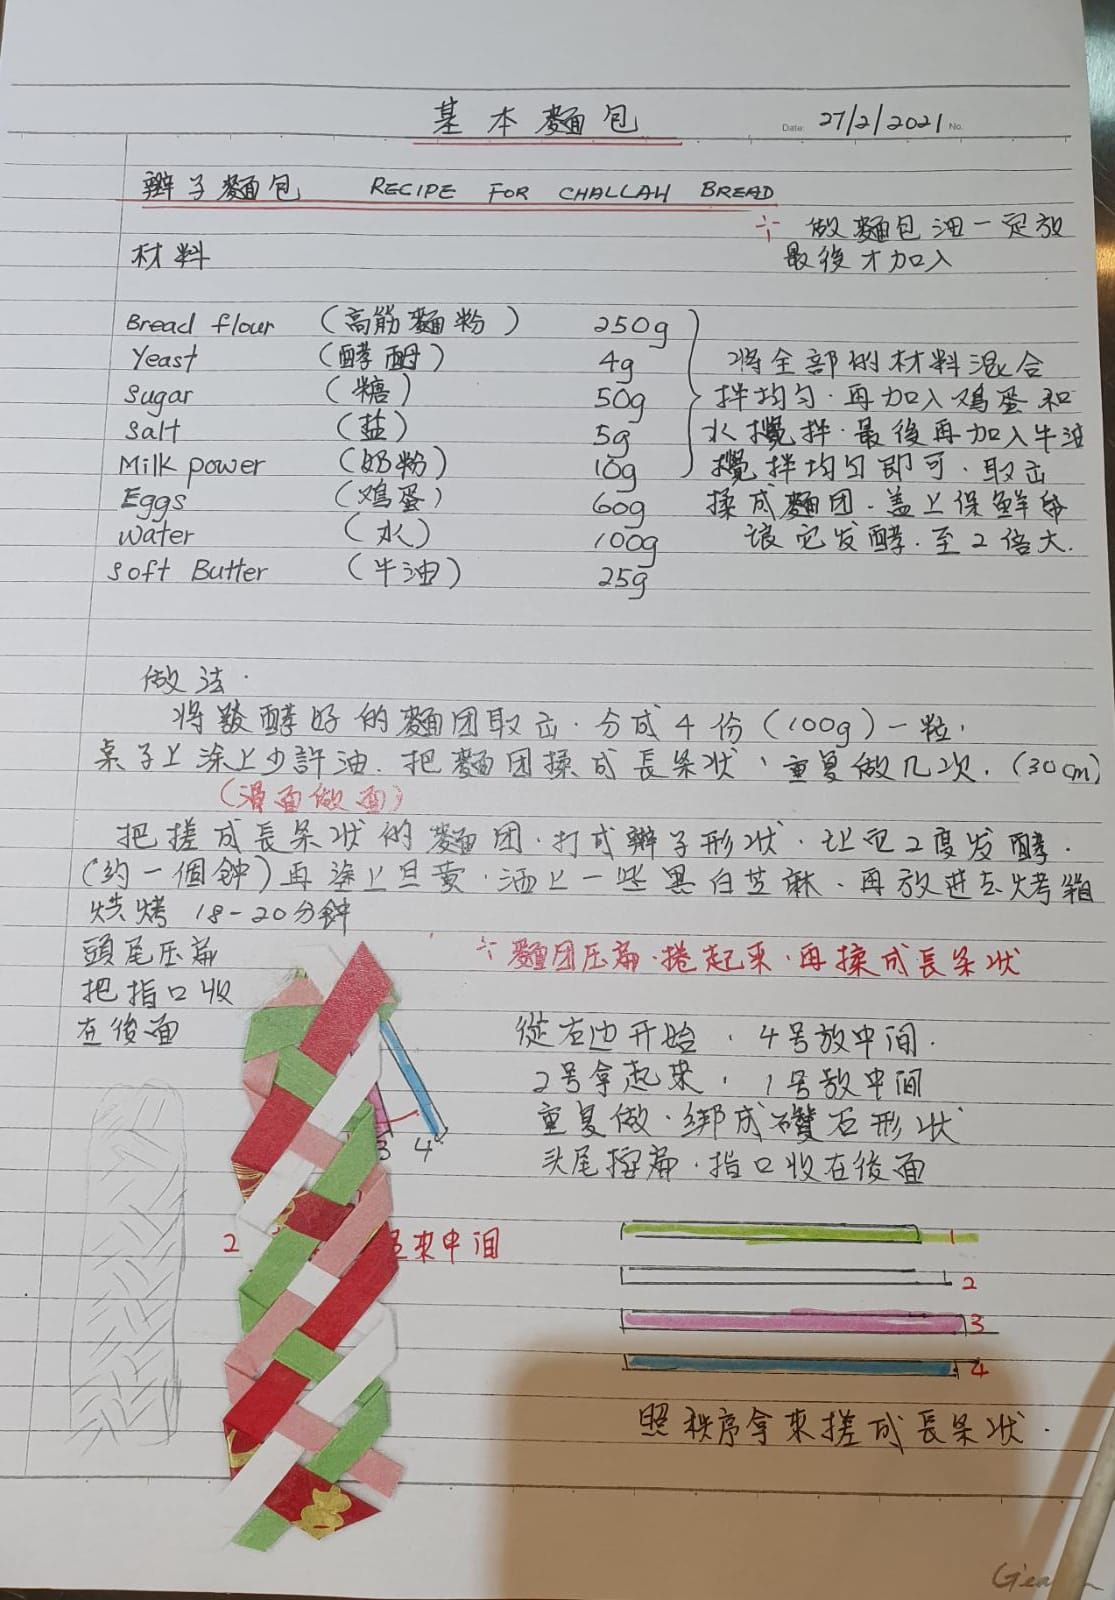 基本麵包
Date: 27/2/2021 No.
辮子麵包 RECIPE FOR CHALLAH BREAD
做麵包油一定放
最後才加入
材料
Bread flour (高筋麵粉) 250g
Yeast (酵酶) 4g
Sugar (糖) 50g
Salt (盐) 5g
Milk power (奶粉) 10g
Eggs (鸡蛋) 60g
Water (水) 100g
Soft Butter (牛油) 25g
将全部的材料混合
拌均匀.再加入鸡蛋和
水攪拌.最後再加入牛油
攪拌均匀即可.取出
揉成麵团.盖上保鲜
让它发酵.至2倍大.
做法.
将酵好的麵团取出.分成4份(100g)一粒,
桌子上涂上少許油.把麵団揉成長条状,重复做几次.(30cm)
(滑面做面)
把搓成長条状的麵团.打成辮子形状.让它2度发酵.
(约一個钟)再塗上旦黄.洒上一些黑白芝麻.再放进去烤箱
烘烤 18-20分钟
頭尾压扁
把指口收
在後面
麵团压扁.捲起来.再揉成長条状
從右边开始,4号放中间.
2号拿起来,1号放中间
重复做.绑成鑽石形状
头尾扁.指口收在後面
3 4
2
来中间
1
2
3
4
照秩序拿来搓成長条状.